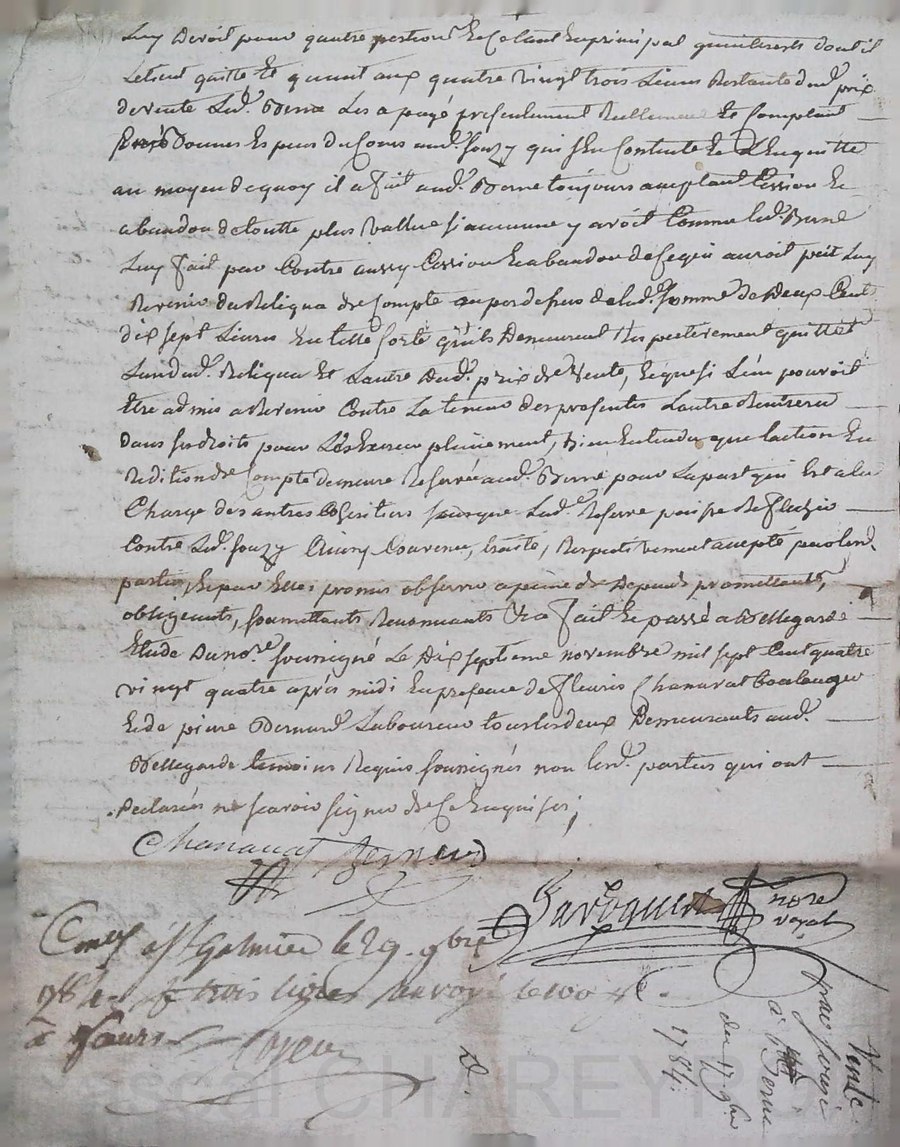 Luy devoit pour quatre portions de Cotant en principal qu'interests dont il
Letient quitte Et quant aux quatre vingt trois Livres Restante dud. prix
devente Led. Berne Les a payé presentement Reellement Et Comptant
Données Es pieces du Cours aud. Jouzy qui s'en Contente Et L'en quitte
au moyen de quoy il a fait aud. Berne toujours acceptant Cession Et
abandon de toutte plus vallue si aucunne y avoit Comme led. Berne
Luy fait par Contre aussy Cession Et abandon de Ce qui auroit peut Luy
Revenir du Reliqua de Compte au par dessus de lad. somme de deux Cent
dix sept Livres En telle sorte qu'ils Demeurent Respectivement quittes
Lun dud. Reliqua Et Lautre Dud. prix de Vente, Et que si L'un pouvoit
Etre admis a Revenir Contre La teneur des presentes Lautre Rentrera
dans ses droits pour Les Exercer pleinement, bien Entendu que laction En
Redition de Compte demeure Reservée aud. Berne pour La part qui Est a la
Charge des autres Cohéritiers sans que Lad. Reserve puisse Reflechir
Contre Led. Jouzy Ainsy Convenu, traité, Respectivement accepté par lesd.
parties, Et par Elles promis observer a peine de Depends promettants,
obligeants, soumettants Renonçants &ca fait Et passé a Bellegarde
Etude Du nore. soussigné Le Dix septieme novembre mil sept Cent quatre
vingt quatre après midi En presence de fleuris Chanavat boulanger
Et de pierre Bernard Laboureur tous les deux Demeurants aud.
Bellegarde temoins Requis soussignés non lesd. parties qui ont
Declarées ne scavoir signer de Ce Enquises;
Chanavat Bernard
nore
royal
a St Galmier le 29 9bre
1784 trois livres Renvoyé le 100
à
Vente
par Jouzi
à Berne
du 17 9bre
1784.
Pascal CHAREYRON